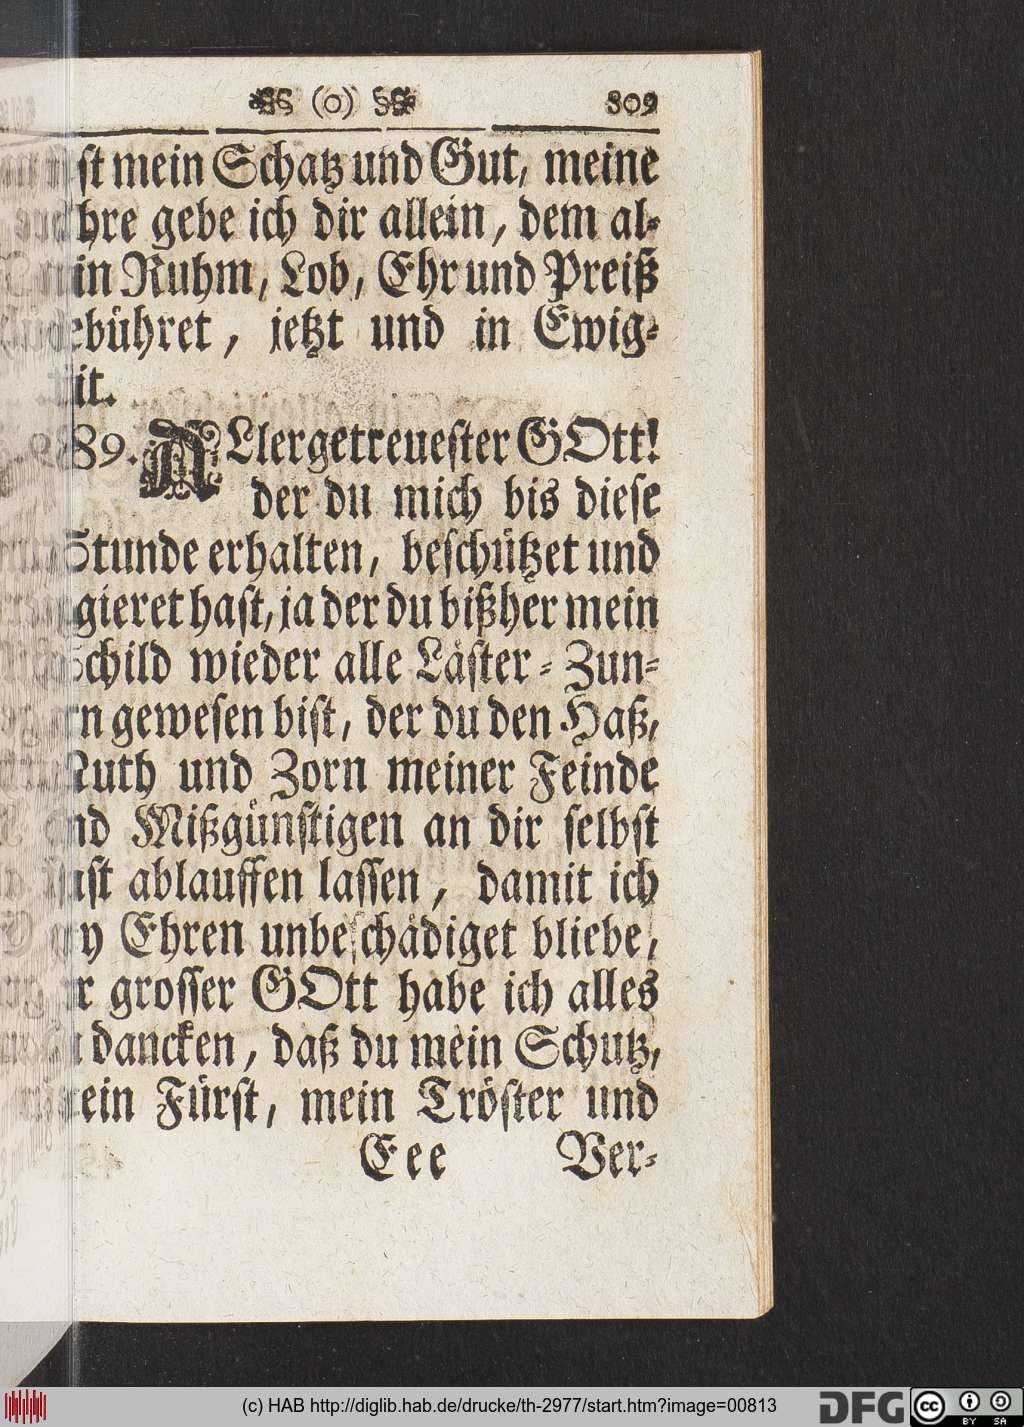 (0) 809
ist mein Schatz und Gut, meine
Ehre gebe ich dir allein, dem al-
lein Ruhm, Lob, Ehr und Preiß
gebühret, jetzt und in Ewig-
keit.
989. ALlergetreuester GOtt!
der du mich bis diese
Stunde erhalten, beschützet und
regieret hast, ja der du bißher mein
Schild wieder alle Läster-Zun-
gen gewesen bist, der du den Haß,
Muth und Zorn meiner Feinde
und Mißgünstigen an dir selbst
hast ablauffen lassen, damit ich
bey Ehren unbeschädiget bliebe,
grosser GOtt habe ich alles
zu dancken, daß du mein Schutz,
mein Fürst, mein Tröster und
Eee Ver-
(c) HAB http://diglib.hab.de/drucke/th-2977/start.htm?image=00813
DFG
cc BY SA